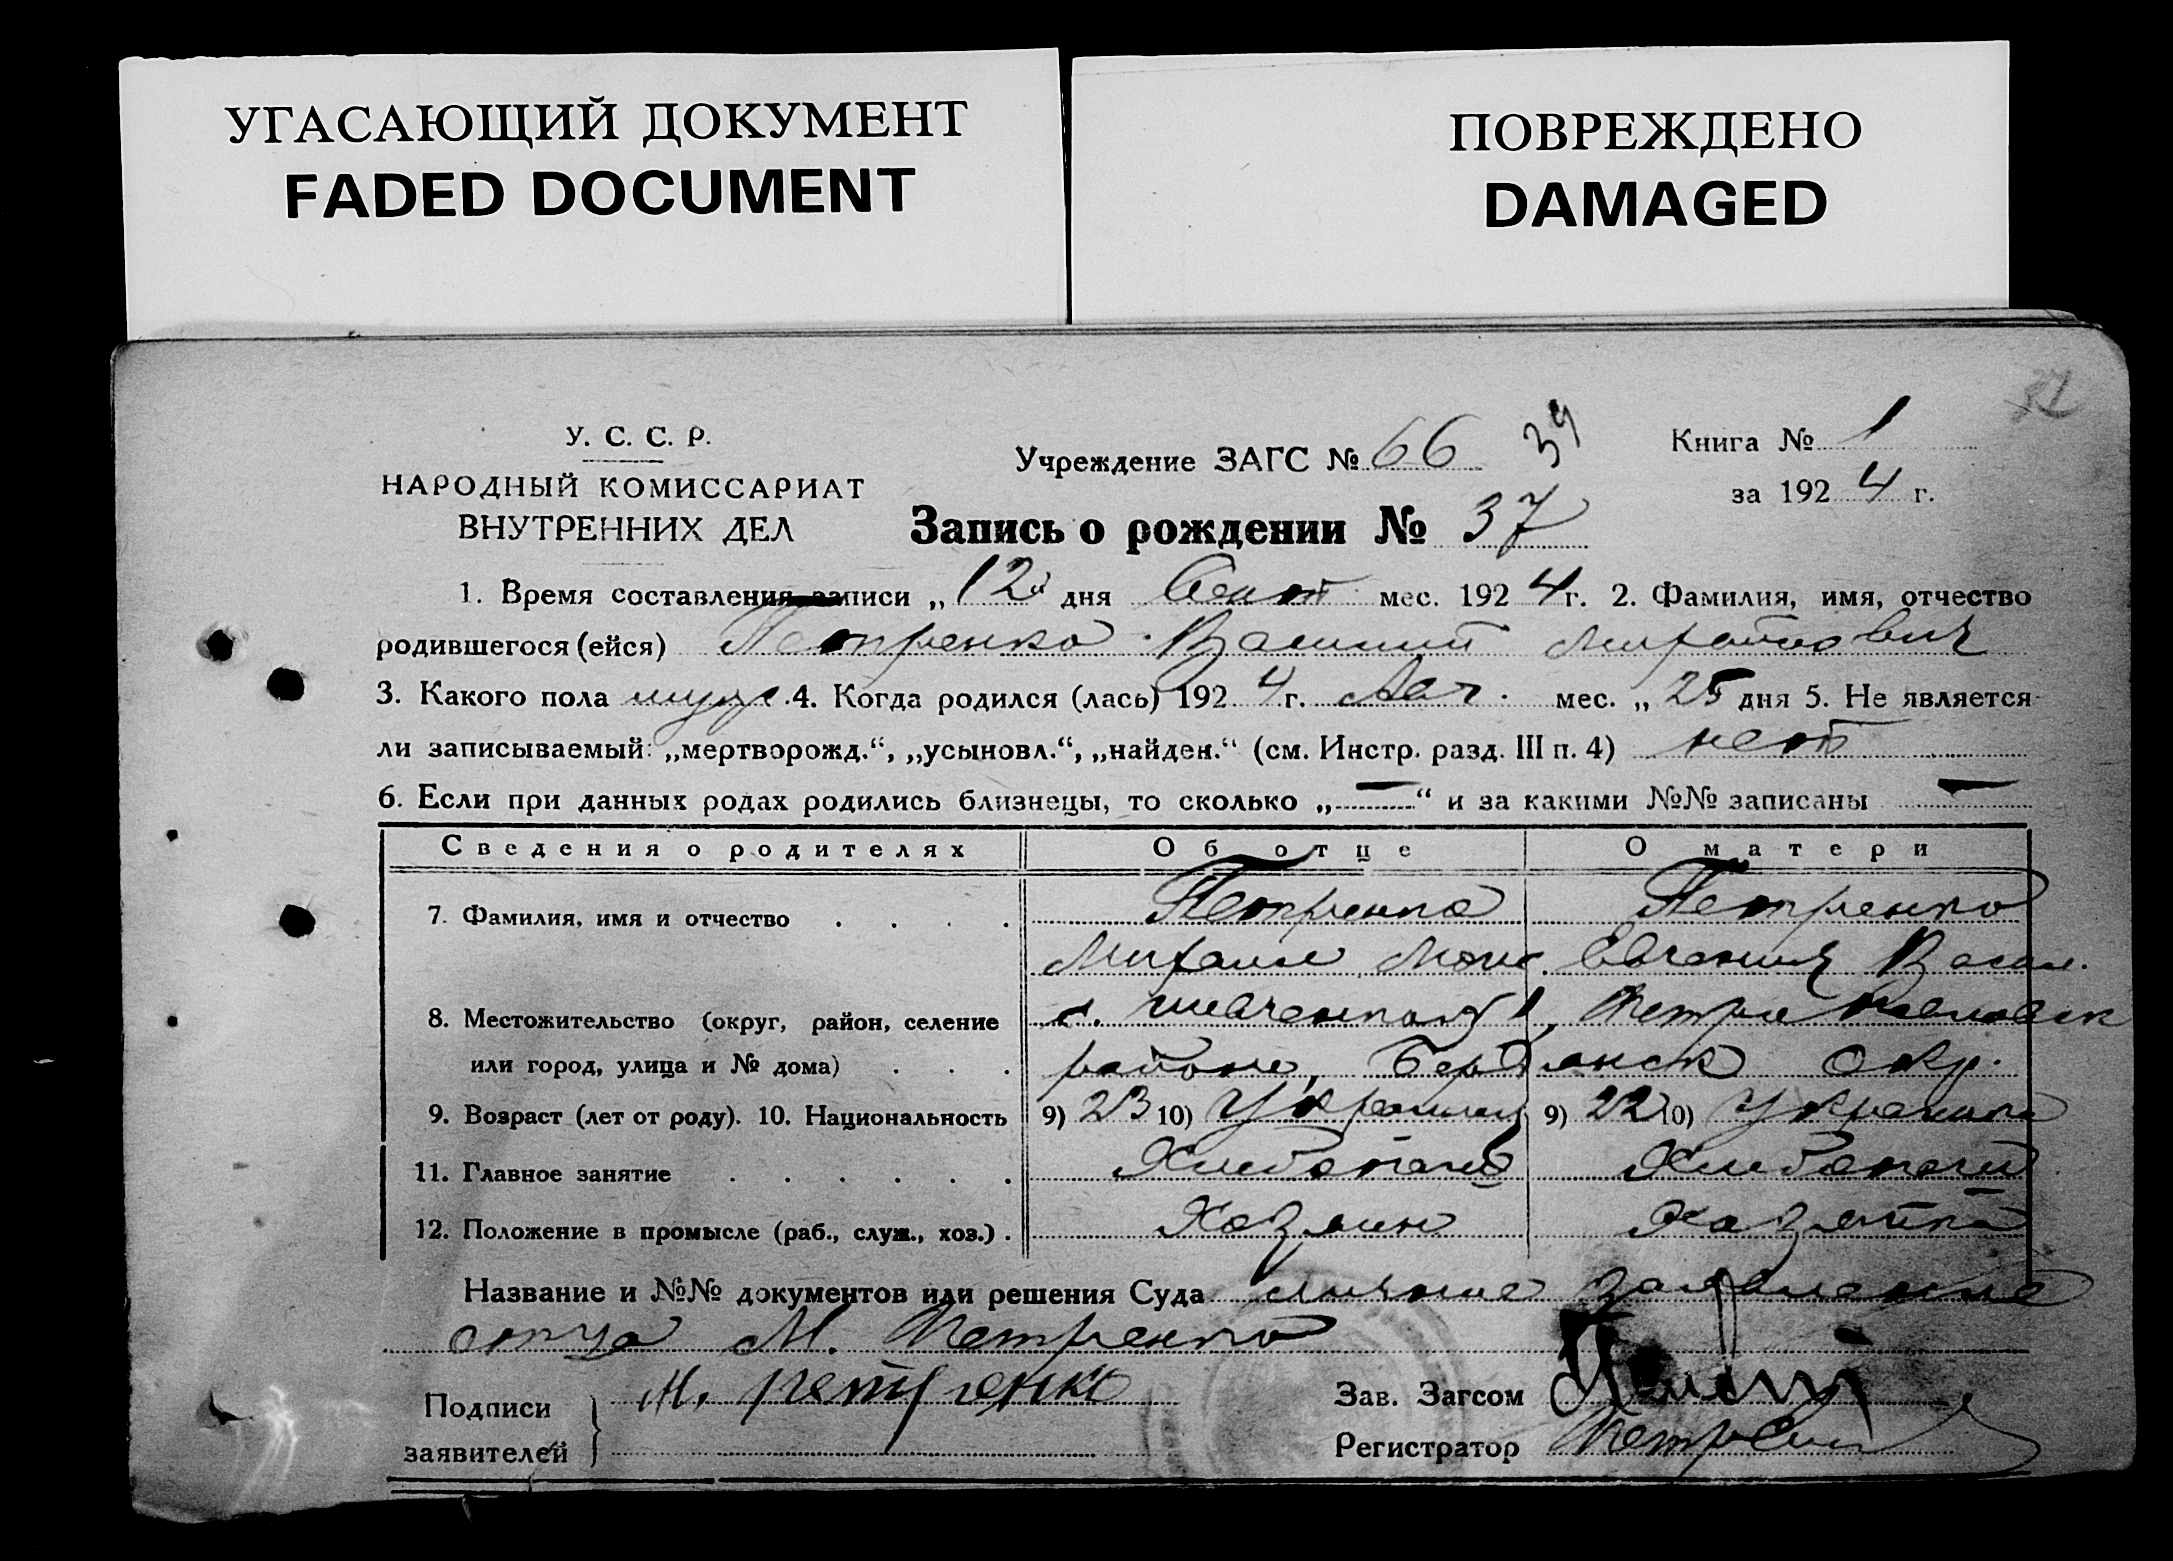 УГАСАЮЩИЙ ДОКУМЕНТ
FADED DOCUMENT
ПОВРЕЖДЕНО
DAMAGED
37
У. С. С. Р.
НАРОДНЫЙ КОМИССАРИАТ
ВНУТРЕННИХ ДЕЛ
Учреждение ЗАГС № 66 39
Книга № 1
за 1924 г.
Запись о рождении № 37
1. Время составления записи „12" дня Сент мес. 1924 г. 2. Фамилия, имя, отчество
родившегося (ейся) Петренко Василий Михайлович
3. Какого пола мужс. 4. Когда родился (лась) 1924 г. Авг. мес. „25 дня 5. Не является
ли записываемый: „мертворожд.“, „усыновл.“, „найден.“ (см. Инстр. разд. III п. 4) нет
6. Если при данных родах родились близнецы, то сколько „—“ и за какими №№ записаны —
Сведения о родителях Об отце О матери
7. Фамилия, имя и отчество Петренко Петренко
Михаил Моис. Евгения Васил.
8. Местожительство (округ, район, селение с. Шевченко
или город, улица и № дома) района, Бердянск Окр.
9. Возраст (лет от роду). 10. Национальность 9) 23 10) Украинец 9) 22 10) Украинка
11. Главное занятие Хлебопаш Хлебопаш
12. Положение в промысле (раб., служ., хоз.) Хозяин Хозяйка
Название и №№ документов или решения Суда личное заявление
отца М. Петренко
Подписи
заявителей
М. Петренко
Зав. Загсом
Регистратор